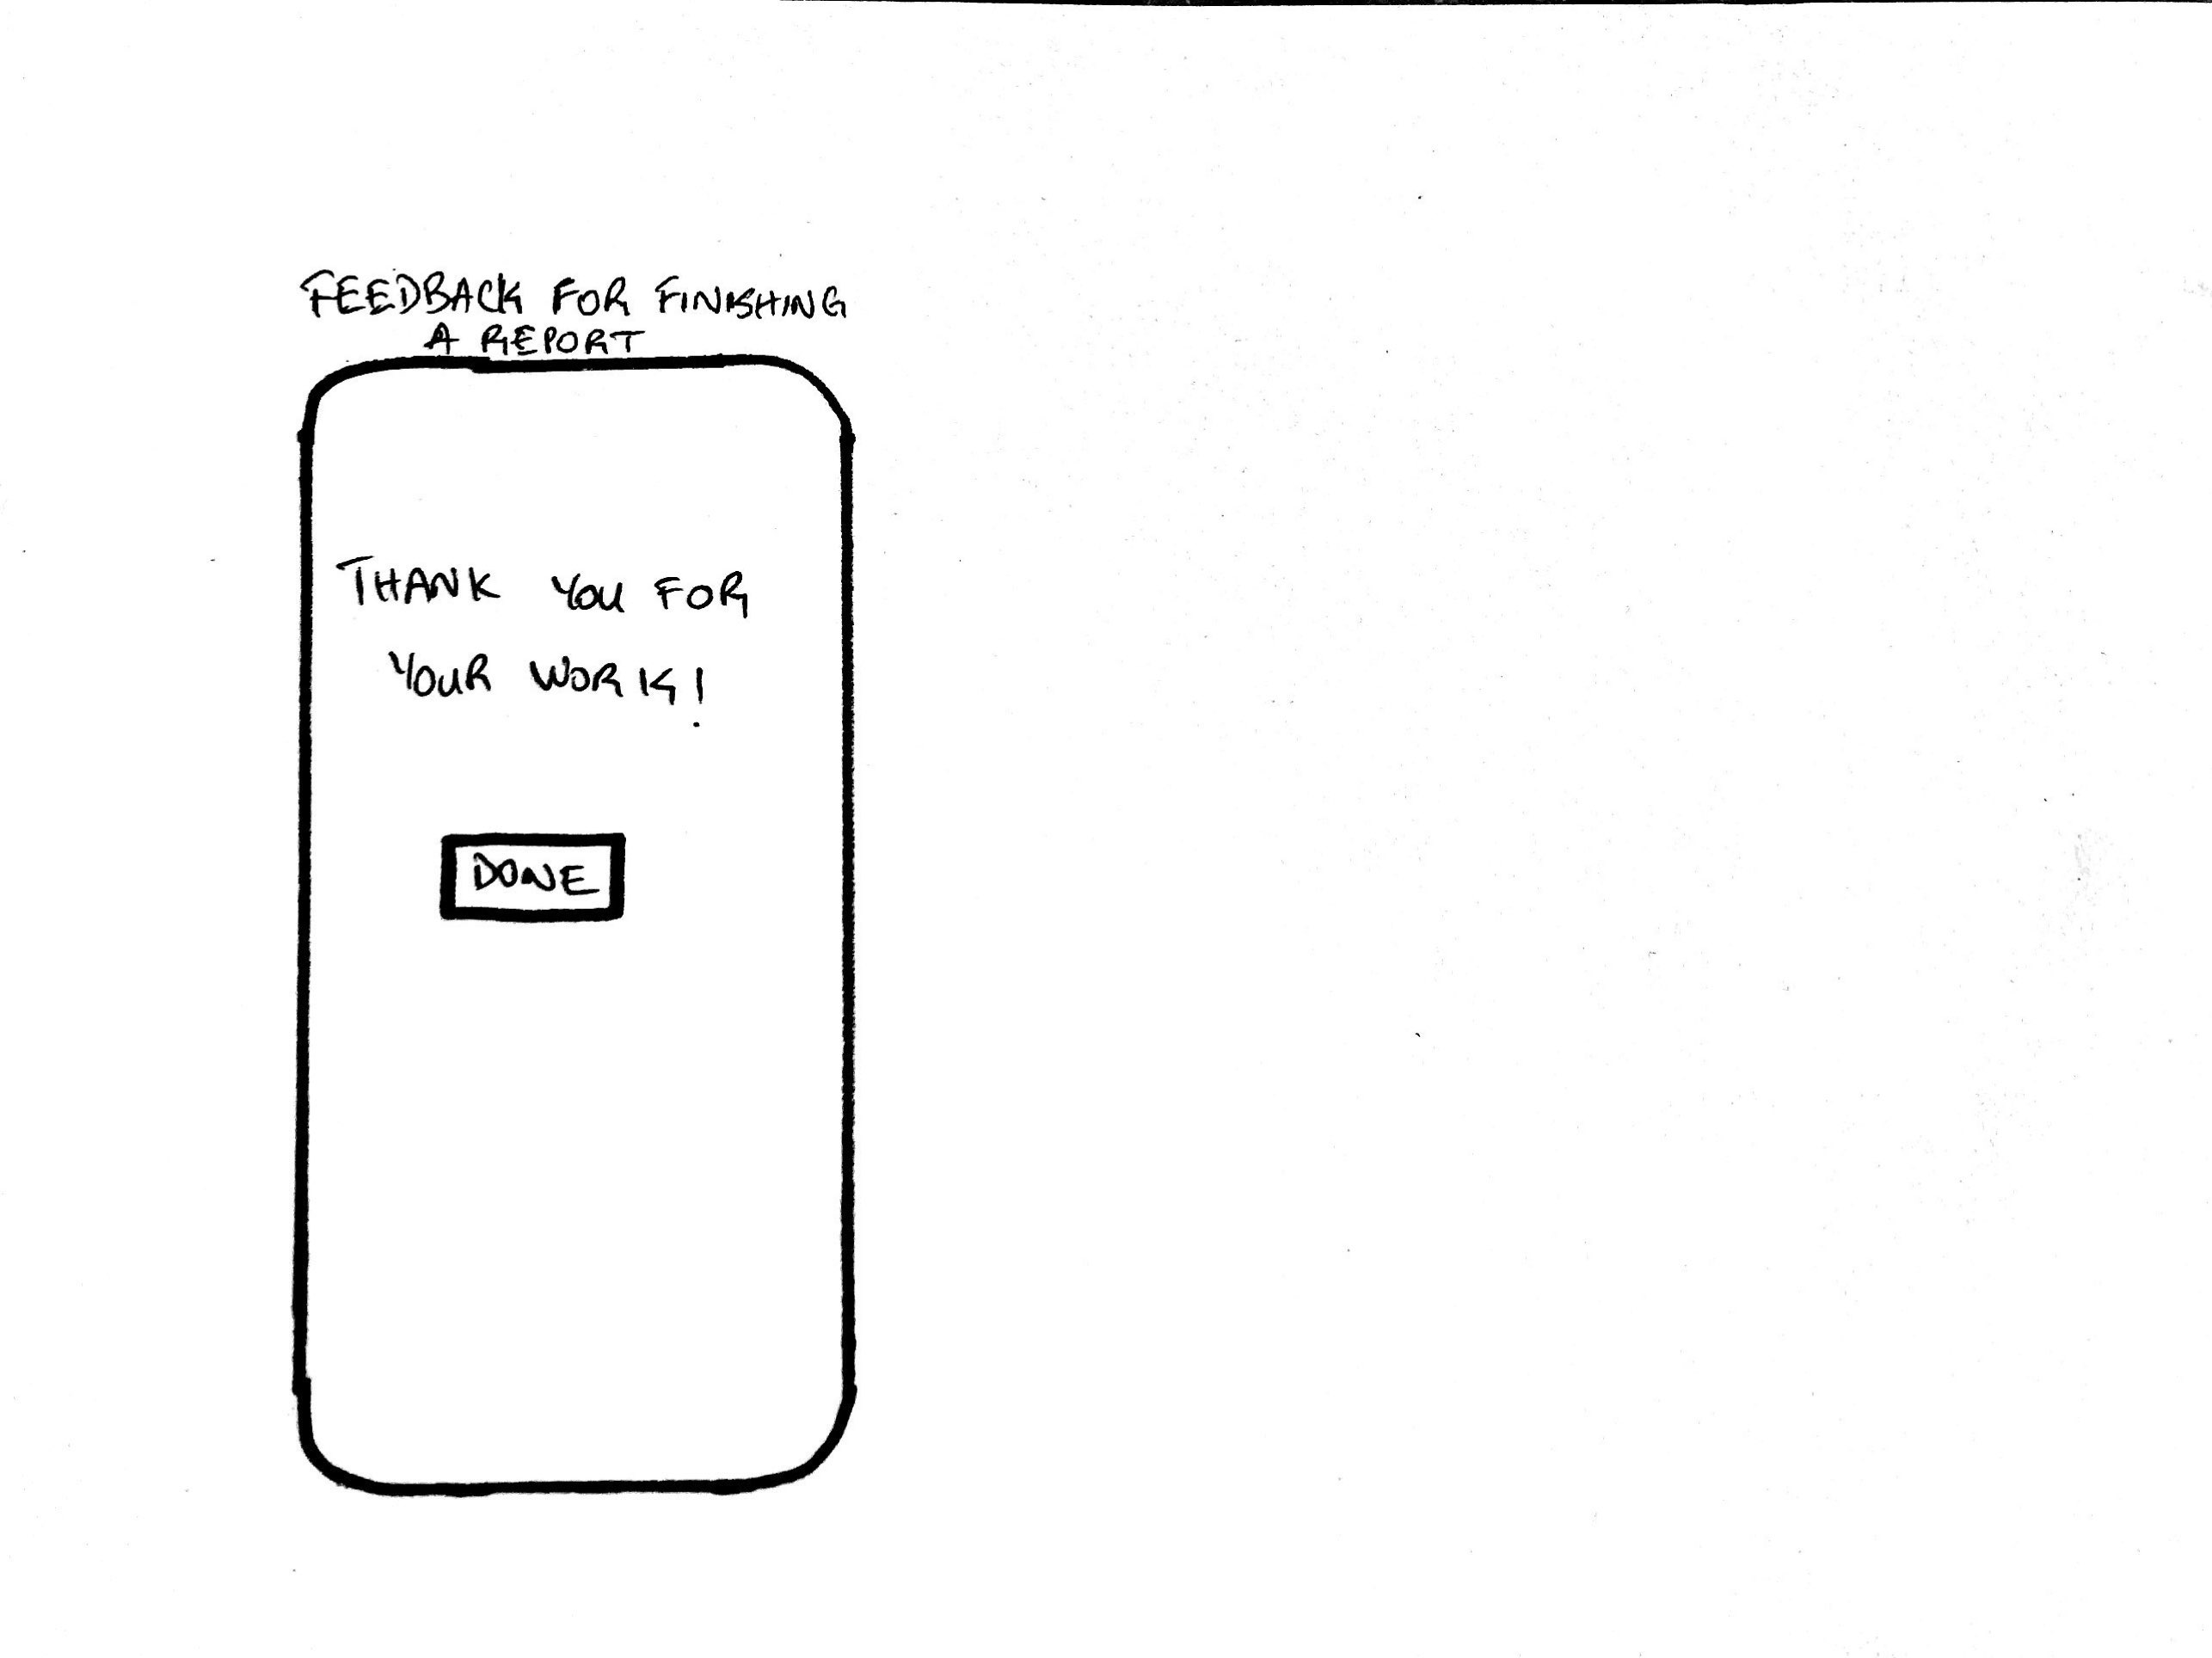 FEEDBACK FOR FINISHING
A REPORT
THANK YOU FOR
YOUR WORK!
DONE